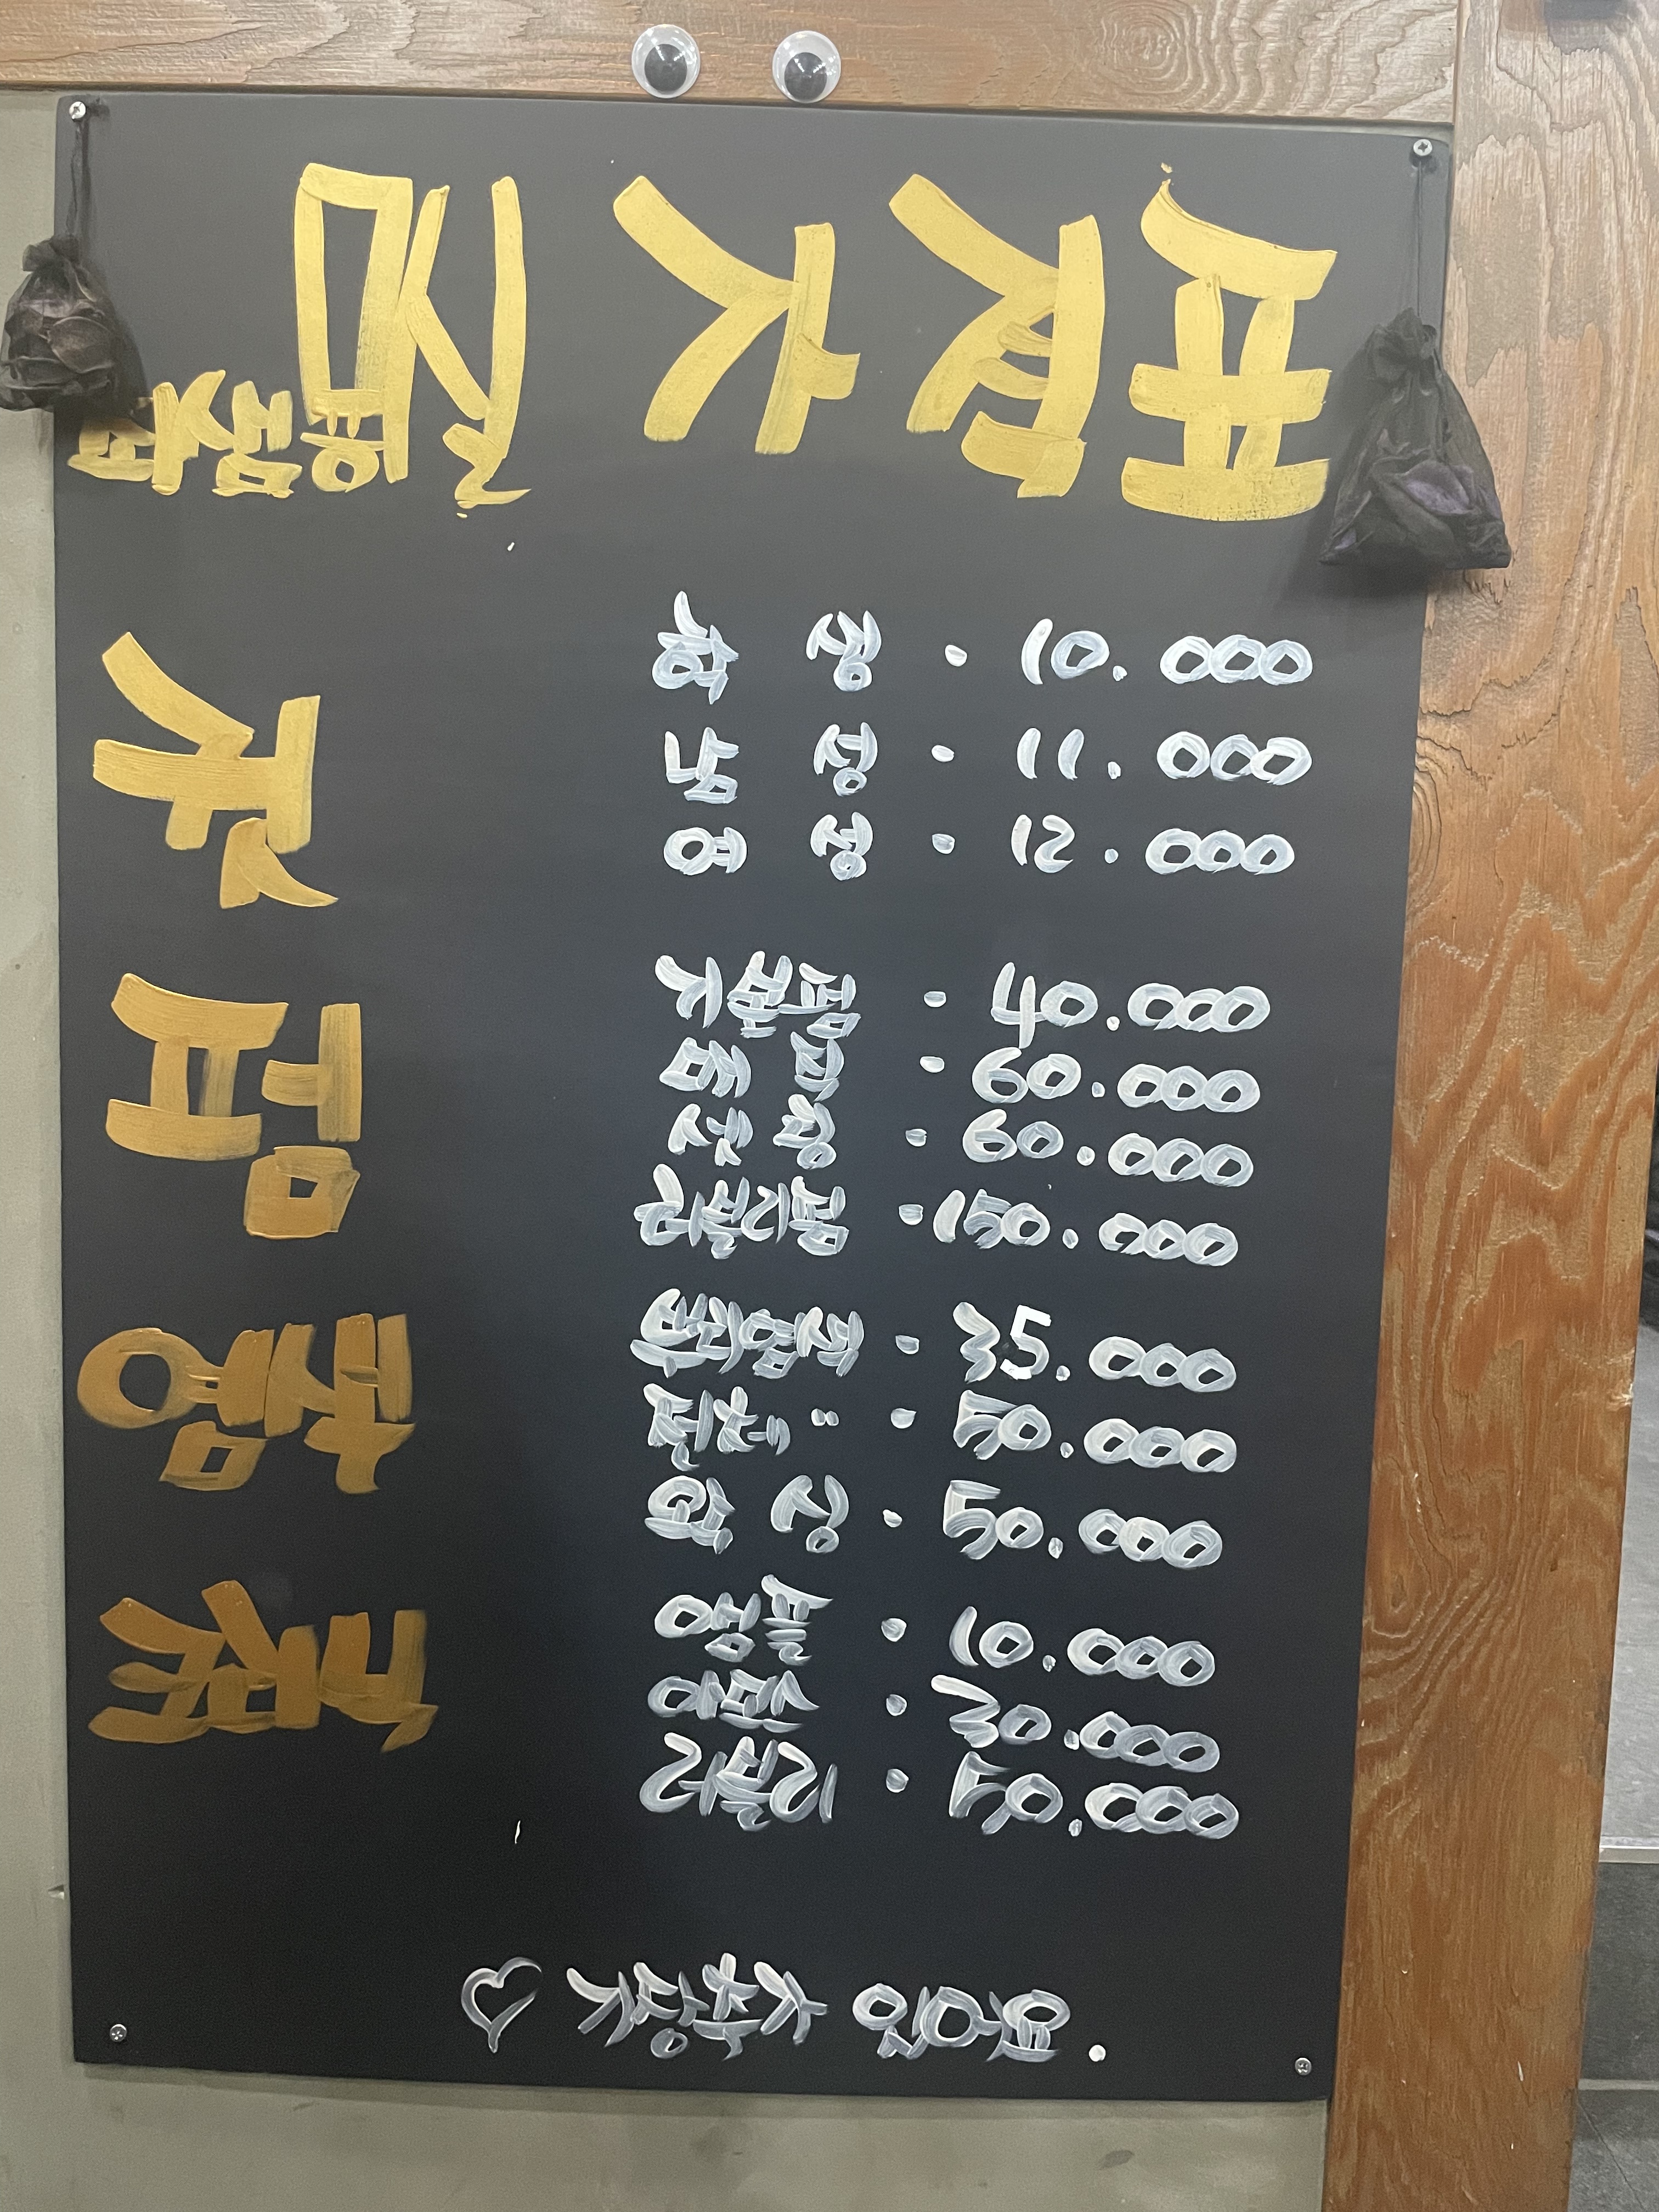 가격표
컷
학생 · 10.000
남성 · 11.000
여성 · 12.000
펌
기본펌 · 40.000
매직 · 60.000
셋팅 · 60.000
· 150.000
염색
뿌리염색 · 35.000
전체 〃 · 50.000
· 50.000
앰플 · 10.000
· 30.000
· 50.000
♡ 기장추가 있어요.